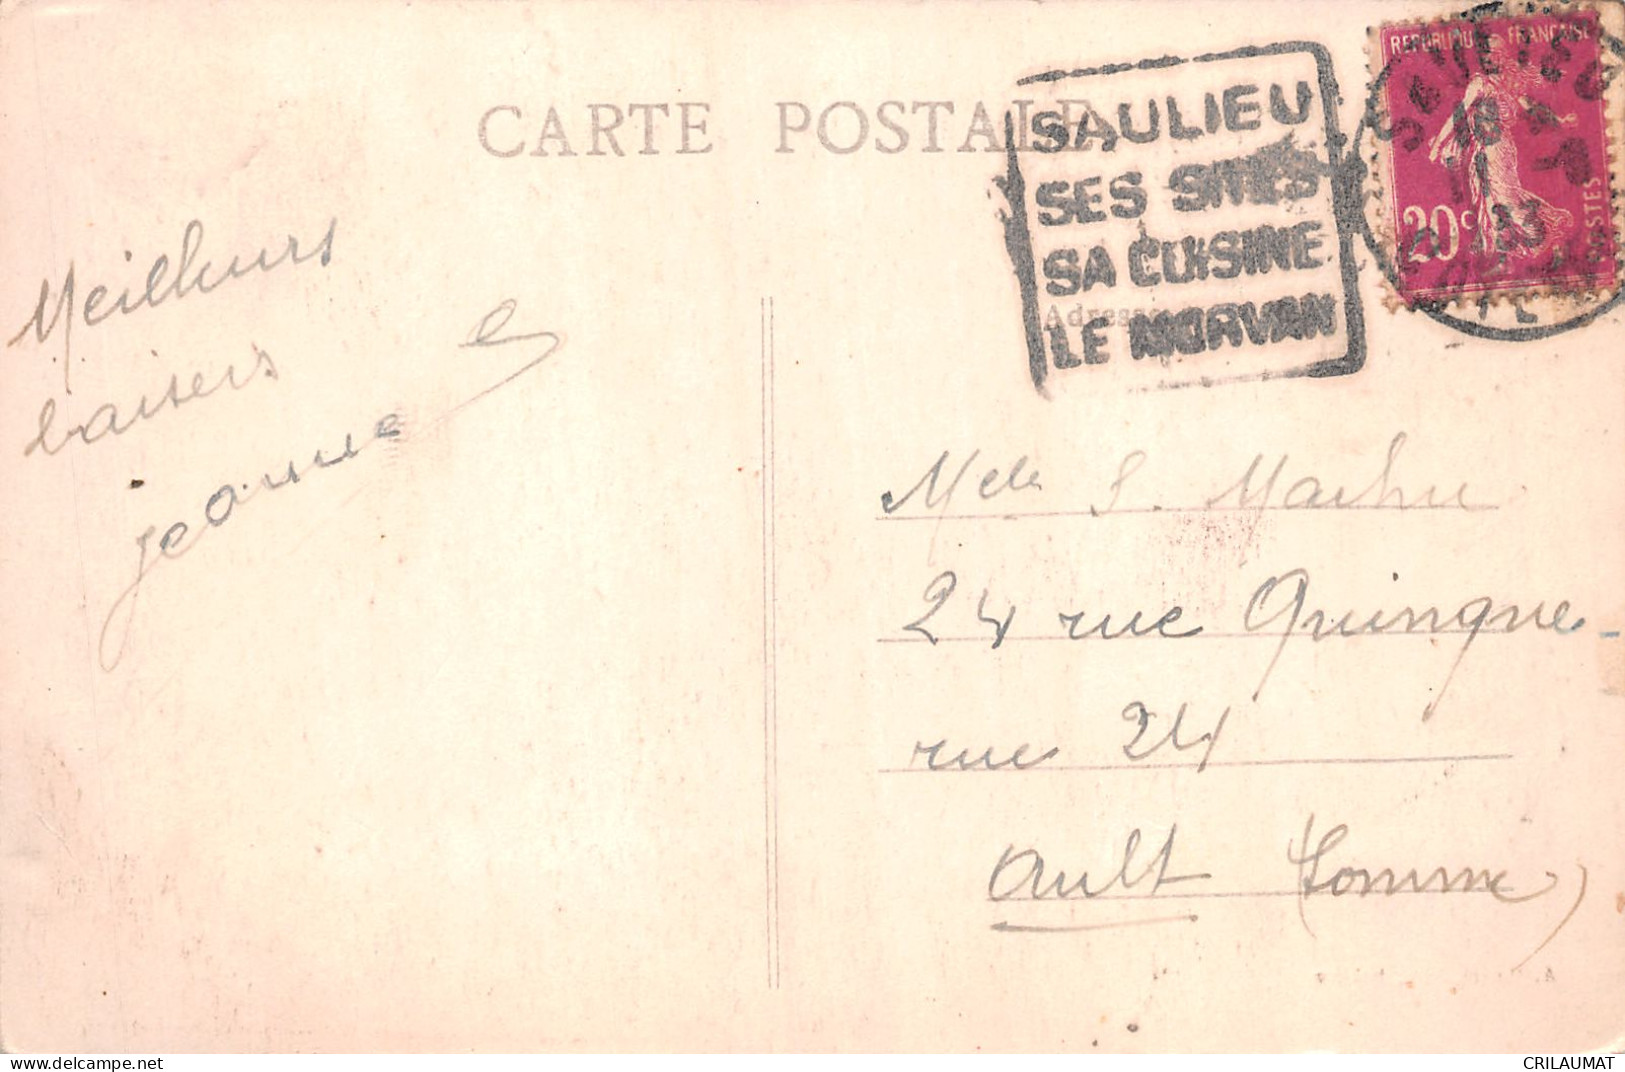 CARTE POSTALE
SAULIEU
SES SITES
SA CUISINE
LE MORVAN
REPUBLIQUE FRANÇAISE
20c
POSTES
18
11
33
Adresse
Meilleurs
baisers
Jeanne
Melle S. Machu
24 rue Quingue
rue 24
Ault (Somme)
www.delcampe.net
CRILAUMAT